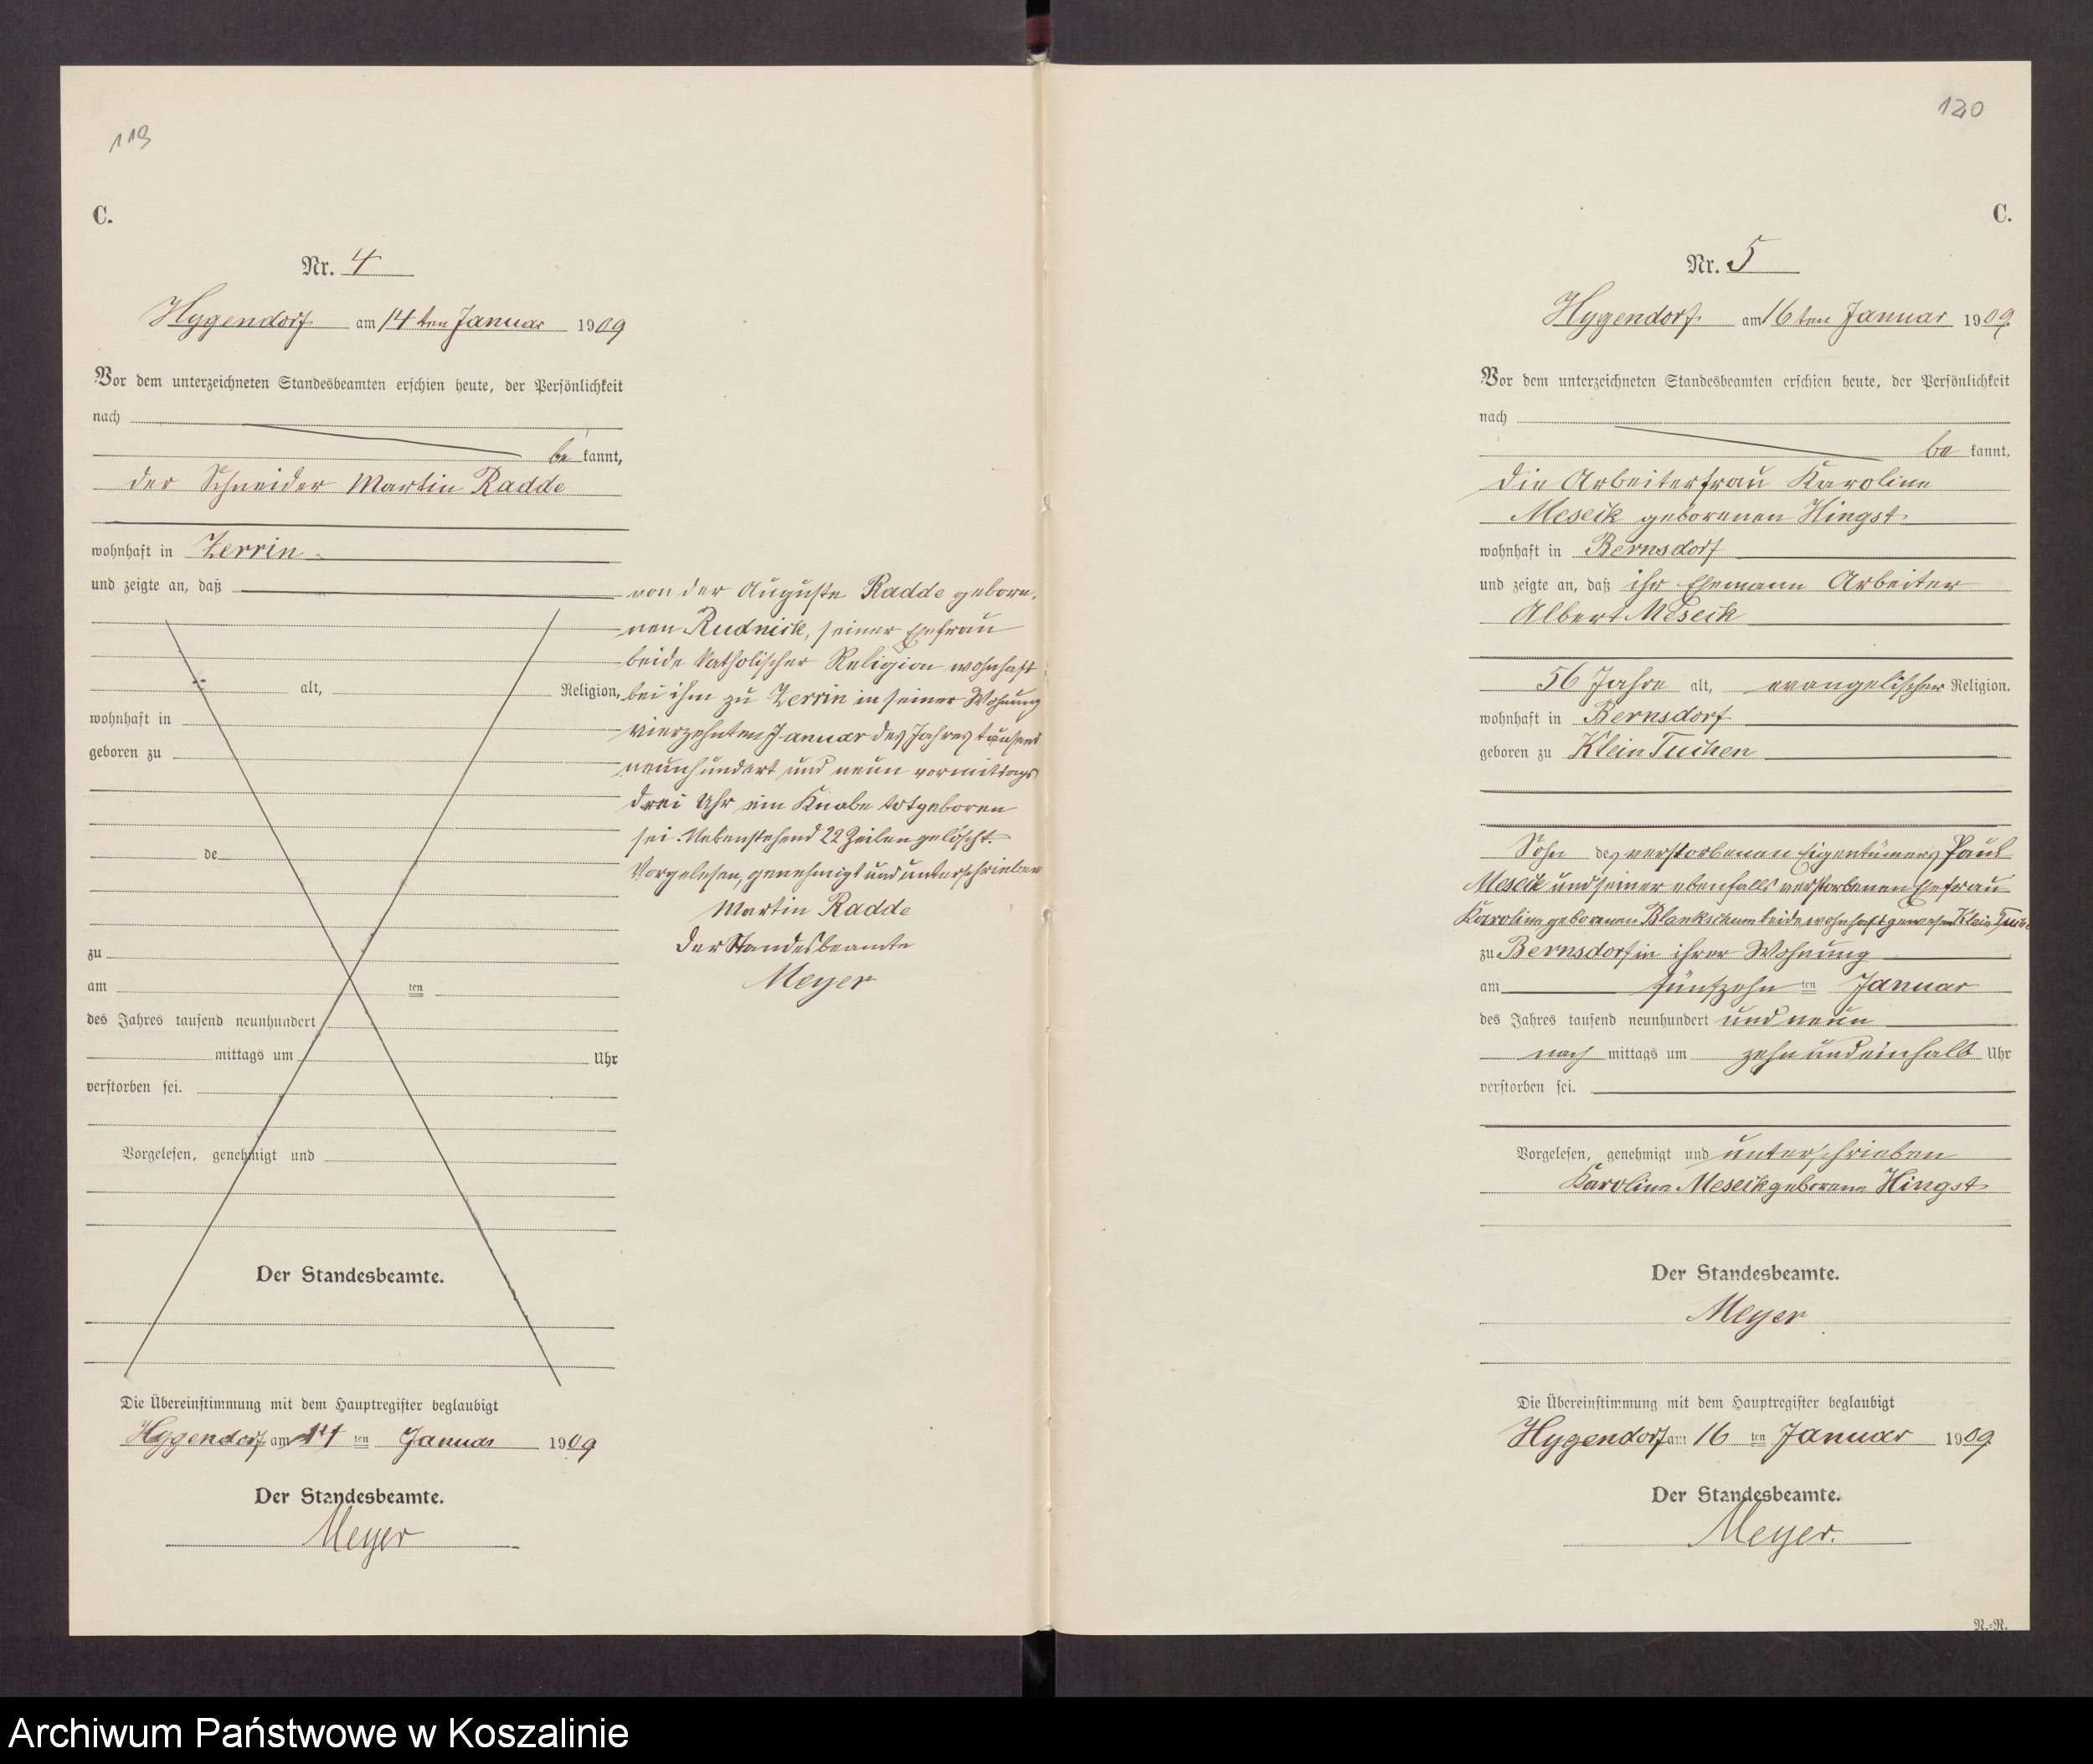 119
C.
Nr. 4
Hygendorf am 14 ten Januar 1909
Vor dem unterzeichneten Standesbeamten erschien heute, der Persönlichkeit
nach
be kannt,
der Schneider Martin Radde
wohnhaft in Zerrin
und zeigte an, daß
alt, Religion,
wohnhaft in
geboren zu
de
zu
am ten
des Jahres tausend neunhundert
mittags um Uhr
verstorben sei.
Vorgelesen, genehmigt und
Der Standesbeamte.
von der Auguste Radde gebore-
nen Rudnick, seiner Ehefrau
beide katholischer Religion wohnhaft
bei ihm zu Zerrin in seiner Wohnung
vierzehnten Januar des Jahres tausend
neunhundert und neun vormittags
drei Uhr ein Knabe totgeboren
sei. Nebenstehend 22 Zeilen gelöscht.
Vorgelesen, genehmigt und unterschrieben
Martin Radde
Der Standesbeamte
Meyer
Die Übereinstimmung mit dem Hauptregister beglaubigt
Hygendorf am 14 ten Januar 1909
Der Standesbeamte.
Meyer
120
C.
Nr. 5
Hygendorf am 16 ten Januar 1909.
Vor dem unterzeichneten Standesbeamten erschien heute, der Persönlichkeit
nach
be kannt,
die Arbeiterfrau Karoline
Meseck geborenen Hingst
wohnhaft in Bernsdorf
und zeigte an, daß ihr Ehemann Arbeiter
Albert Meseck
56 Jahre alt, evangelischer Religion.
wohnhaft in Bernsdorf
geboren zu Klein Tuchen
Sohn des verstorbenen Eigentümers Paul
Meseck und seiner ebenfalls verstorbenen Ehefrau
Karoline geborenen beide wohnhaft gewesen Klein Tuchen
zu Bernsdorf in ihrer Wohnung
am fünfzehn ten Januar
des Jahres tausend neunhundert und neun
nach mittags um zehn und einhalb Uhr
verstorben sei.
Vorgelesen, genehmigt und unterschrieben
Karoline Meseck geborene Hingst
Der Standesbeamte.
Meyer
Die Übereinstimmung mit dem Hauptregister beglaubigt
Hygendorf am 16 ten Januar 1909.
Der Standesbeamte.
Meyer.
N.-N.
Archiwum Państwowe w Koszalinie